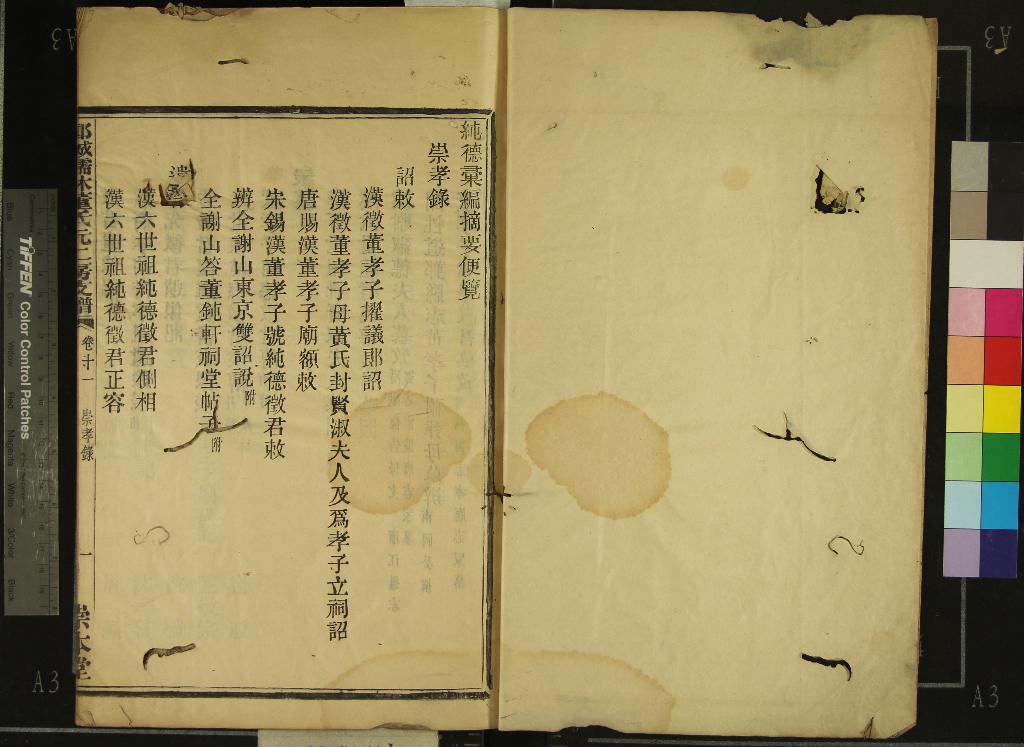 純德彙編摘要便覽
崇孝錄
詔敕
漢徵董孝子擢議郎詔
漢徵董孝子母黃氏封賢淑夫人及爲孝子立祠詔
唐賜漢董孝子廟額敕
宋錫漢董孝子號純德徵君敕
辨全謝山東京雙詔說附
全謝山答董鈍軒祠堂帖子附
遺
漢六世祖純德徵君側相
漢六世祖純德徵君正容
董氏元二房支譜 卷十一 崇孝錄 一 崇本堂
TIFFEN Color Control Patches
Blue Cyan Green Yellow Red Magenta White 3/Color Black
A3
A3
A3
A3